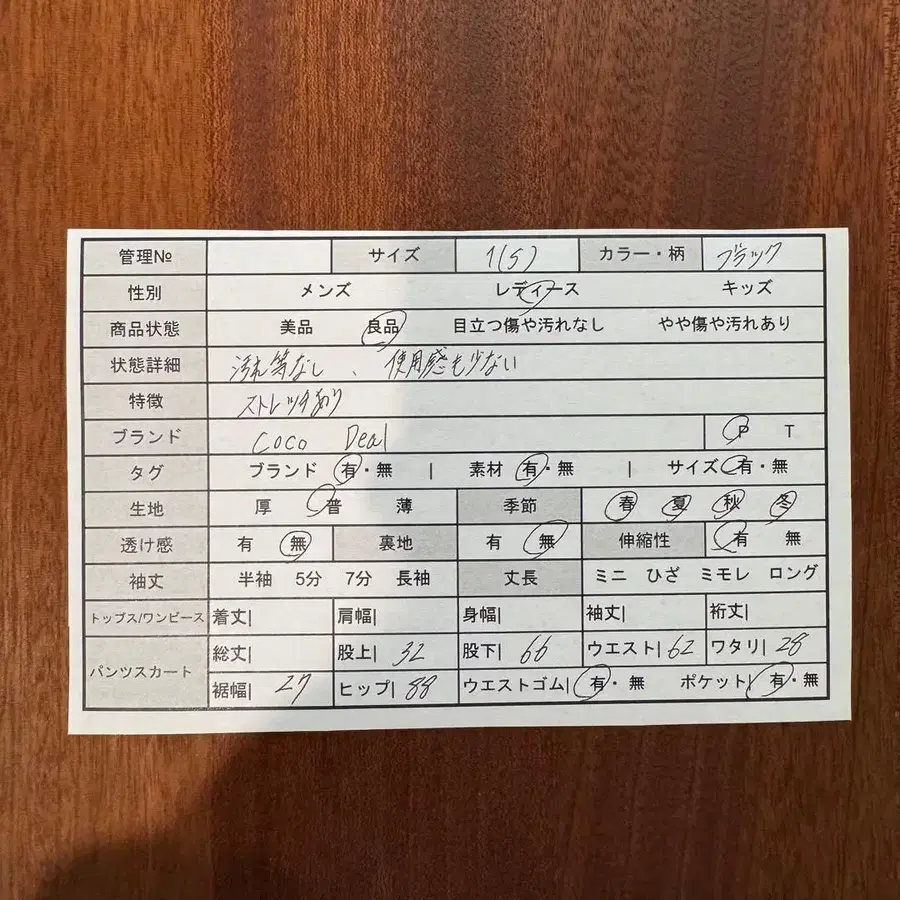 管理№ サイズ 1(S) カラー・柄 ブラック
性別 メンズ レディース キッズ
商品状態 美品 良品 目立つ傷や汚れなし やや傷や汚れあり
状態詳細 汚れ等なし、使用感も少ない
特徴 ストレッチあり
ブランド COCO Deal P T
タグ ブランド 有・無 | 素材 有・無 | サイズ 有・無
生地 厚 普 薄 季節 春 夏 秋 冬
透け感 有 無 裏地 有 無 伸縮性 有 無
袖丈 半袖 5分 7分 長袖 丈長 ミニ ひざ ミモレ ロング
トップス/ワンピース 着丈| 肩幅| 身幅| 袖丈| 裄丈|
パンツスカート 総丈| 股上| 32 股下| 66 ウエスト| 62 ワタリ| 28
裾幅| 27 ヒップ| 88 ウエストゴム| 有・無 ポケット| 有・無